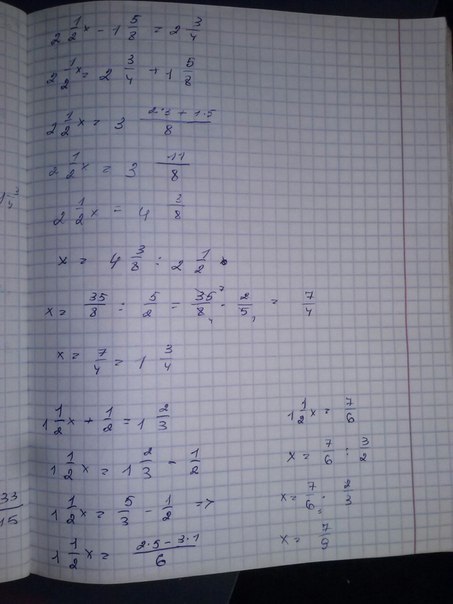 2 1/2 x - 1 5/8 = 2 3/4
2 1/2 x = 2 3/4 + 1 5/8
2 1/2 x = 3 (2·3 + 1·5)/8
2 1/2 x = 3 11/8
2 1/2 x = 4 3/8
x = 4 3/8 : 2 1/2
x = 35/8 : 5/2 = 35/8 · 2/5 = 7/4
x = 7/4 = 1 3/4
1 1/2 x + 1/2 = 1 2/3
1 1/2 x = 1 2/3 - 1/2
1 1/2 x = 5/3 - 1/2 =>
1 1/2 x = (2·5 - 3·1)/6
1 1/2 x = 7/6
x = 7/6 : 3/2
x = 7/6 · 2/3
x = 7/9
33/15